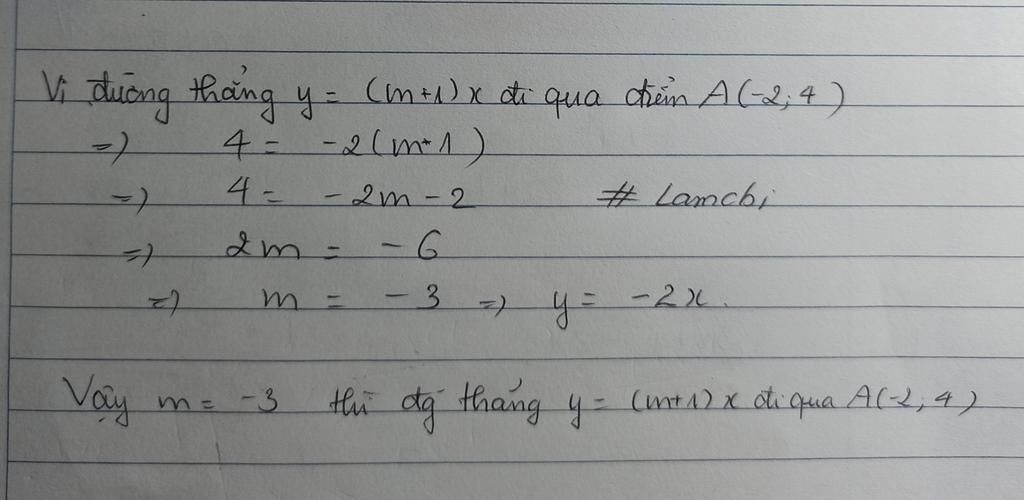 Vì đường thẳng y = (m+1)x đi qua điểm A(-2; 4)
=) 4 = -2(m+1)
=) 4 = -2m - 2 # Lamchi
=) 2m = -6
=) m = -3 =) y = -2x.
Vậy m = -3 thì đg thẳng y = (m+1)x đi qua A(-2; 4)